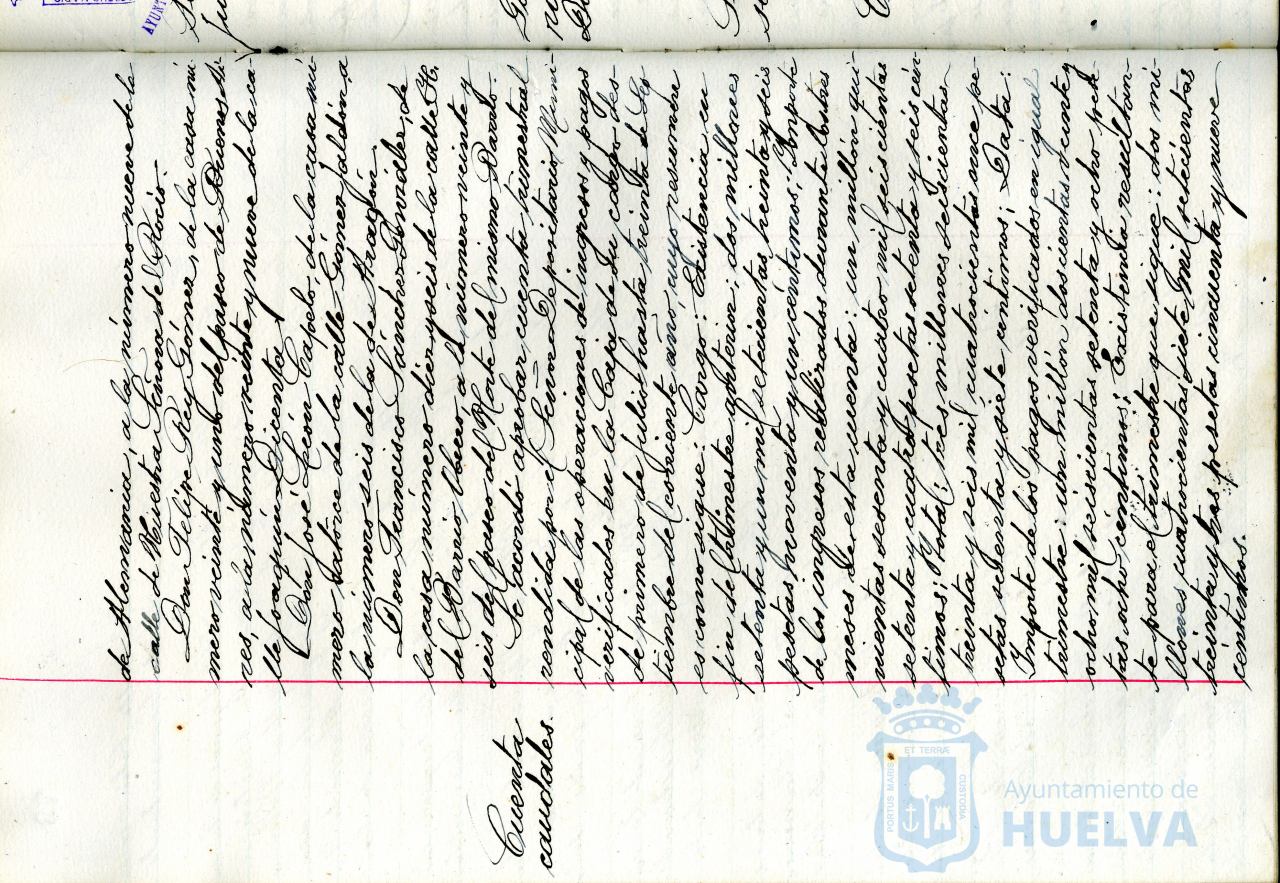 de Alemania, a la número nueve de la
calle de Nuestra Señora del Rocio.-
Don Felipe Rey Gómez, de la casa nú-
mero veinte y uno del paseo de Buenos Ai-
res, a la número veinte y nueve de la ca-
lle Joaquin Dicenta.
Don José Lacén Capelo, de la casa nú-
mero de la calle Gómez Jaldón, a
la número seis de la de Aragón.
Don Francisco Sánchez de
la casa número diez y seis de la calle H.
del Barrio Obrero a la número veinte y
seis del paseo del Norte del mismo Barrio.
Cuenta
caudales.
Se acordó aprobar cuenta trimestral
rendida por el Señor Depositario Muni-
cipal de las operaciones de ingresos y pagos
verificados en la Caja de su cargo des-
de primero de Julio hasta treinta de Sep-
tiembre del corriente año, cuyo resumen
es como sigue: Cargo: Existencia en
fin del trimestre anterior: dos millones
setenta y un mil setecientas treinta y seis
pesetas, noventa y un céntimos; Importe
de los ingresos celebrados durante los tres
meses de esta cuenta: un millón qui-
nientas sesenta y cuatro mil seiscientas
setenta y cuatro pesetas setenta y seis cén-
timos; total; tres millones seiscientas
treinta y seis mil cuatrocientas once pe-
setas sesenta y siete céntimos; Data:
Importe de los pagos verificados en igual
trimestre: un millón doscientas veinte y
ocho mil seiscientas setenta y ocho pese-
tas ocho céntimos; Existencia resultan-
te para el trimestre que sigue: dos mi-
llones cuatrocientas siete mil setecientas
treinta y tres pesetas cincuenta y nueve
céntimos.
PORTUS MARIS ET TERRÆ CUSTODIA
Ayuntamiento de
HUELVA